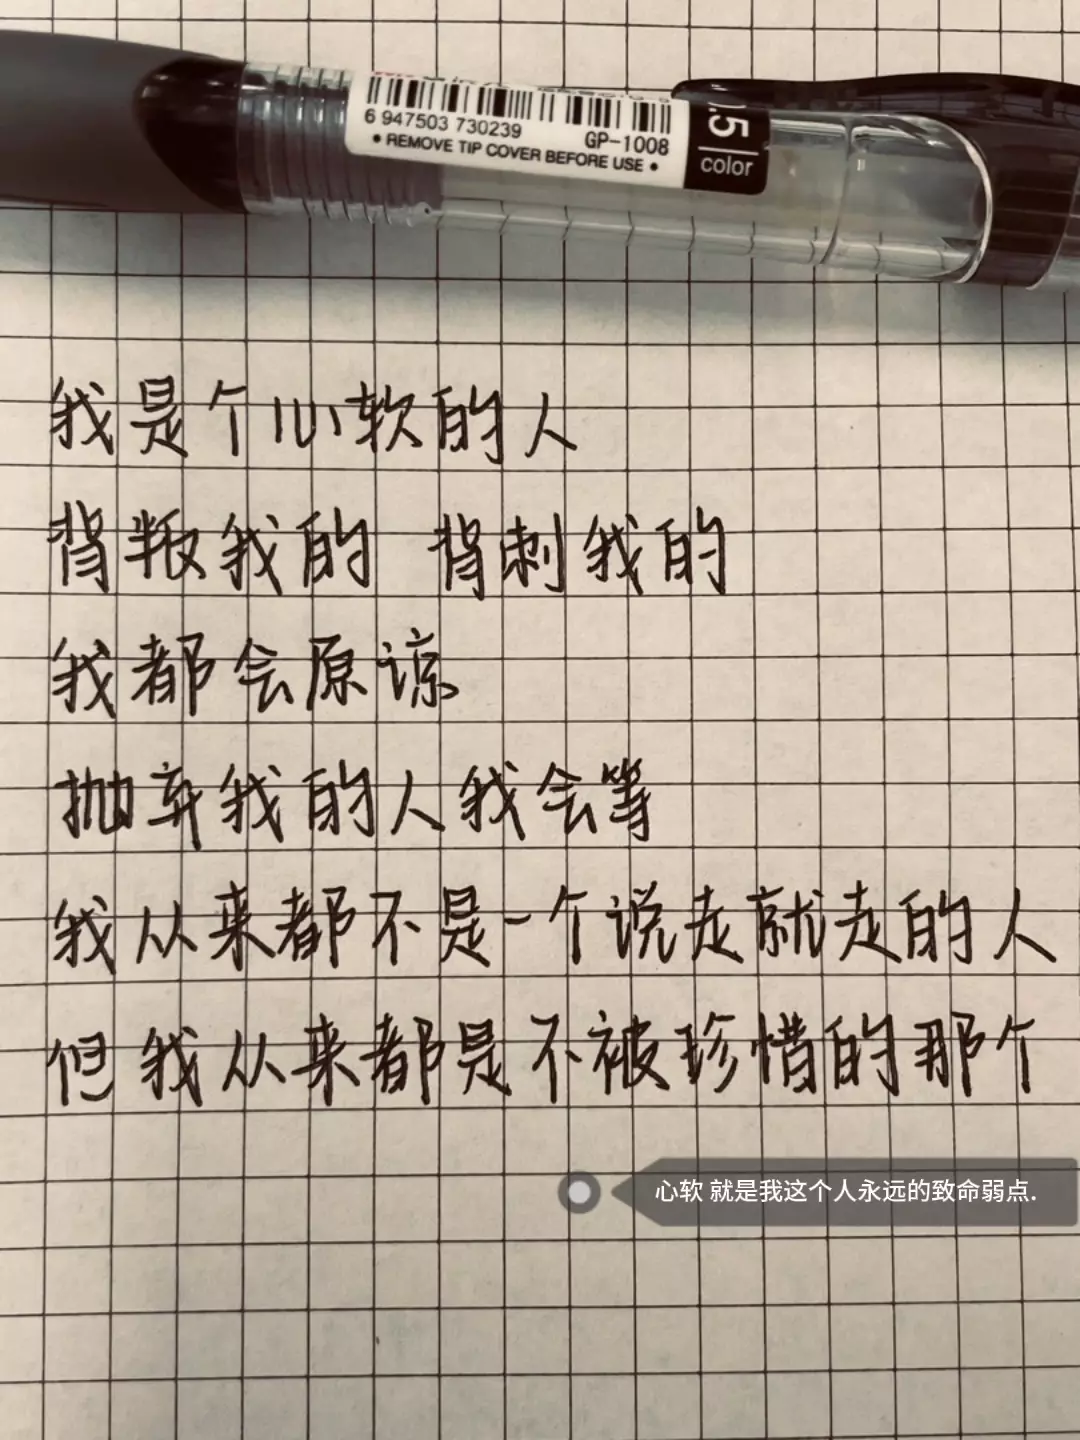 6 947503 730239
GP-1008
• REMOVE TIP COVER BEFORE USE •
.5
color
我是个心软的人
背叛我的 背刺我的
我都会原谅
抛弃我的人我会等
我从来都不是一个说走就走的人
但我从来都是不被珍惜的那个
心软 就是我这个人永远的致命弱点.